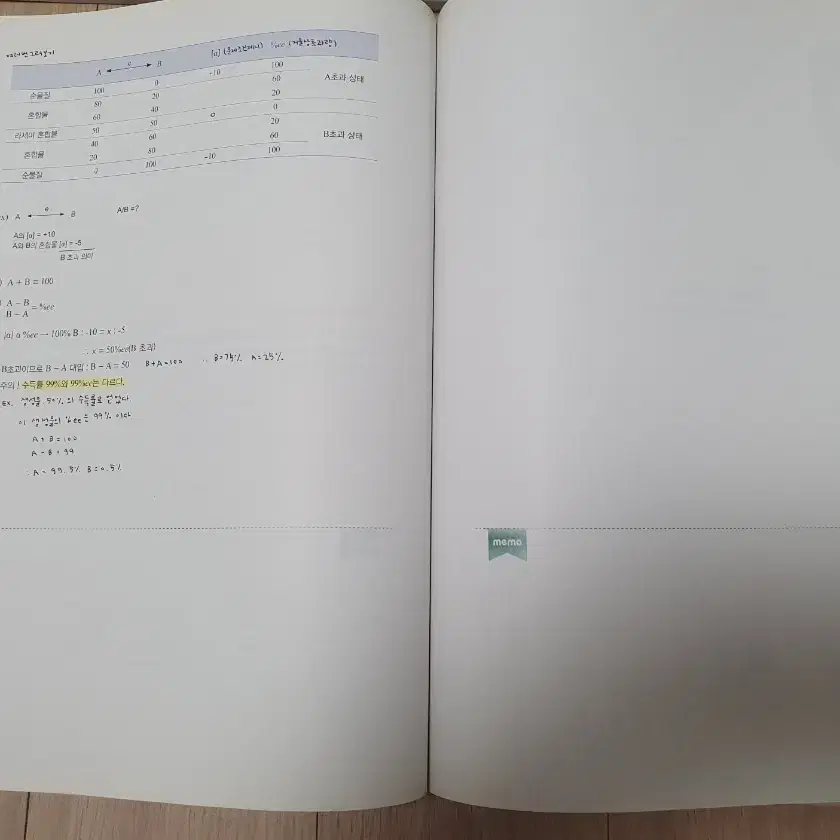 여러번 그려보기
A ←e→ B [α] (문제조건제시) %ee (거울상초과량)
순물질 100 0 -10 100 A초과 상태
80 20 60
혼합물 60 40 20
라세미 혼합물 50 50 0 0
40 60 20 B초과 상태
혼합물 20 80 60
순물질 100 -10 100
A ←e→ B A/B =?
A의 [α] = +10
A와 B의 혼합물 [α] = -5
B 초과 의미
A + B = 100
A − B
B − A = %ee
[α] α %ee → 100% B : -10 = x : -5
∴ x = 50%ee(B 초과)
B초과이므로 B − A 대입 : B − A = 50 B+A=100 ∴ B=75% A=25%
주의 ! 수득률 99%와 99%ee는 다르다.
EX. 생성물 50% 의 수득률로 얻었다
이 생성물의 %ee는 99% 이다
A + B = 100
A − B = 99
∴ A = 99.5% B=0.5%
memo